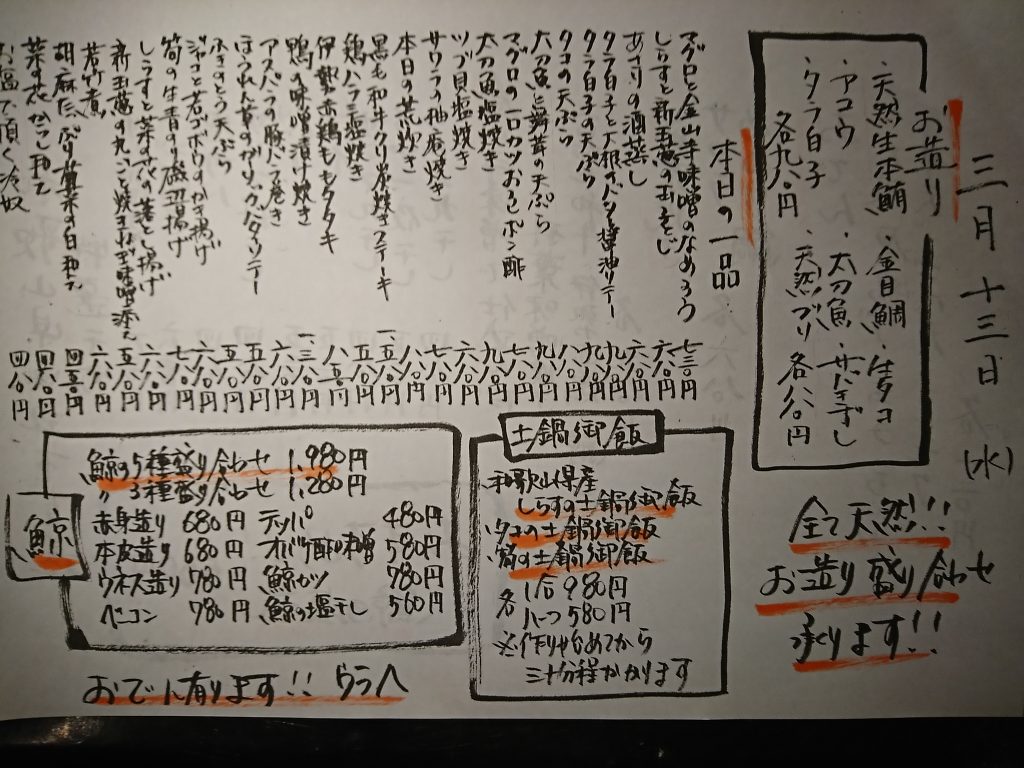 三月十三日(水)
お造り
・天然生本鮪 ・金目鯛 ・生タコ
・アコウ ・太刀魚 ・サバきずし
・タラ白子 ・天然ブリ
各九八〇円 各六八〇円
全て天然!!
お造り盛り合わせ
承ります!!
本日の一品
マグロと金山寺味噌のなめろう 七三〇円
しらすと新玉葱のおろし 六八〇円
あさりの酒蒸し 六八〇円
タラ白子と大根のバター醤油ソテー 九八〇円
タラ白子の天ぷら 九八〇円
タコの天ぷら 八八〇円
太刀魚と舞茸の天ぷら 九八〇円
マグロの一口カツおろしポン酢 七八〇円
太刀魚塩焼き 九八〇円
ツブ貝塩焼き 六八〇円
サワラの柚庵焼き 七八〇円
本日の荒炊き 八八〇円
黒毛和牛クリ炭焼きステーキ 一、五八〇円
鶏ハラミ塩焼き 五八〇円
伊勢赤鶏ももタタキ 八五〇円
鴨の味噌漬け焼き 一、三八〇円
アスパラの豚バラ巻き 六八〇円
ほうれん草のガーリックバターソテー 五八〇円
ふきのとう天ぷら 五八〇円
ジャコと若ゴボウのかき揚げ 六八〇円
筍の生青のり磯辺揚げ 七八〇円
しらすと菜の花の落とし揚げ 六八〇円
新玉葱の丸ごと焼きねぎ味噌添え 五八〇円
若竹煮 六八〇円
胡麻たっぷり菜の白和え 四五〇円
菜の花からし和え 四八〇円
お塩で頂く冷奴 四八〇円
土鍋御飯
和歌山県産
しらすの土鍋御飯
タコの土鍋御飯
筍の土鍋御飯
各 1合 980円
ハーフ 580円
※作り始めてから
三十分程かかります
鯨
鯨の5種盛り合わせ 1,980円
〃 3種盛り合わせ 1,280円
赤身造り 680円 テッパ 480円
本皮造り 680円 オバケ酢味噌 580円
ウネス造り 780円 鯨カツ 780円
ベーコン 780円 鯨の塩干し 560円
おでん有ります!! ウラへ